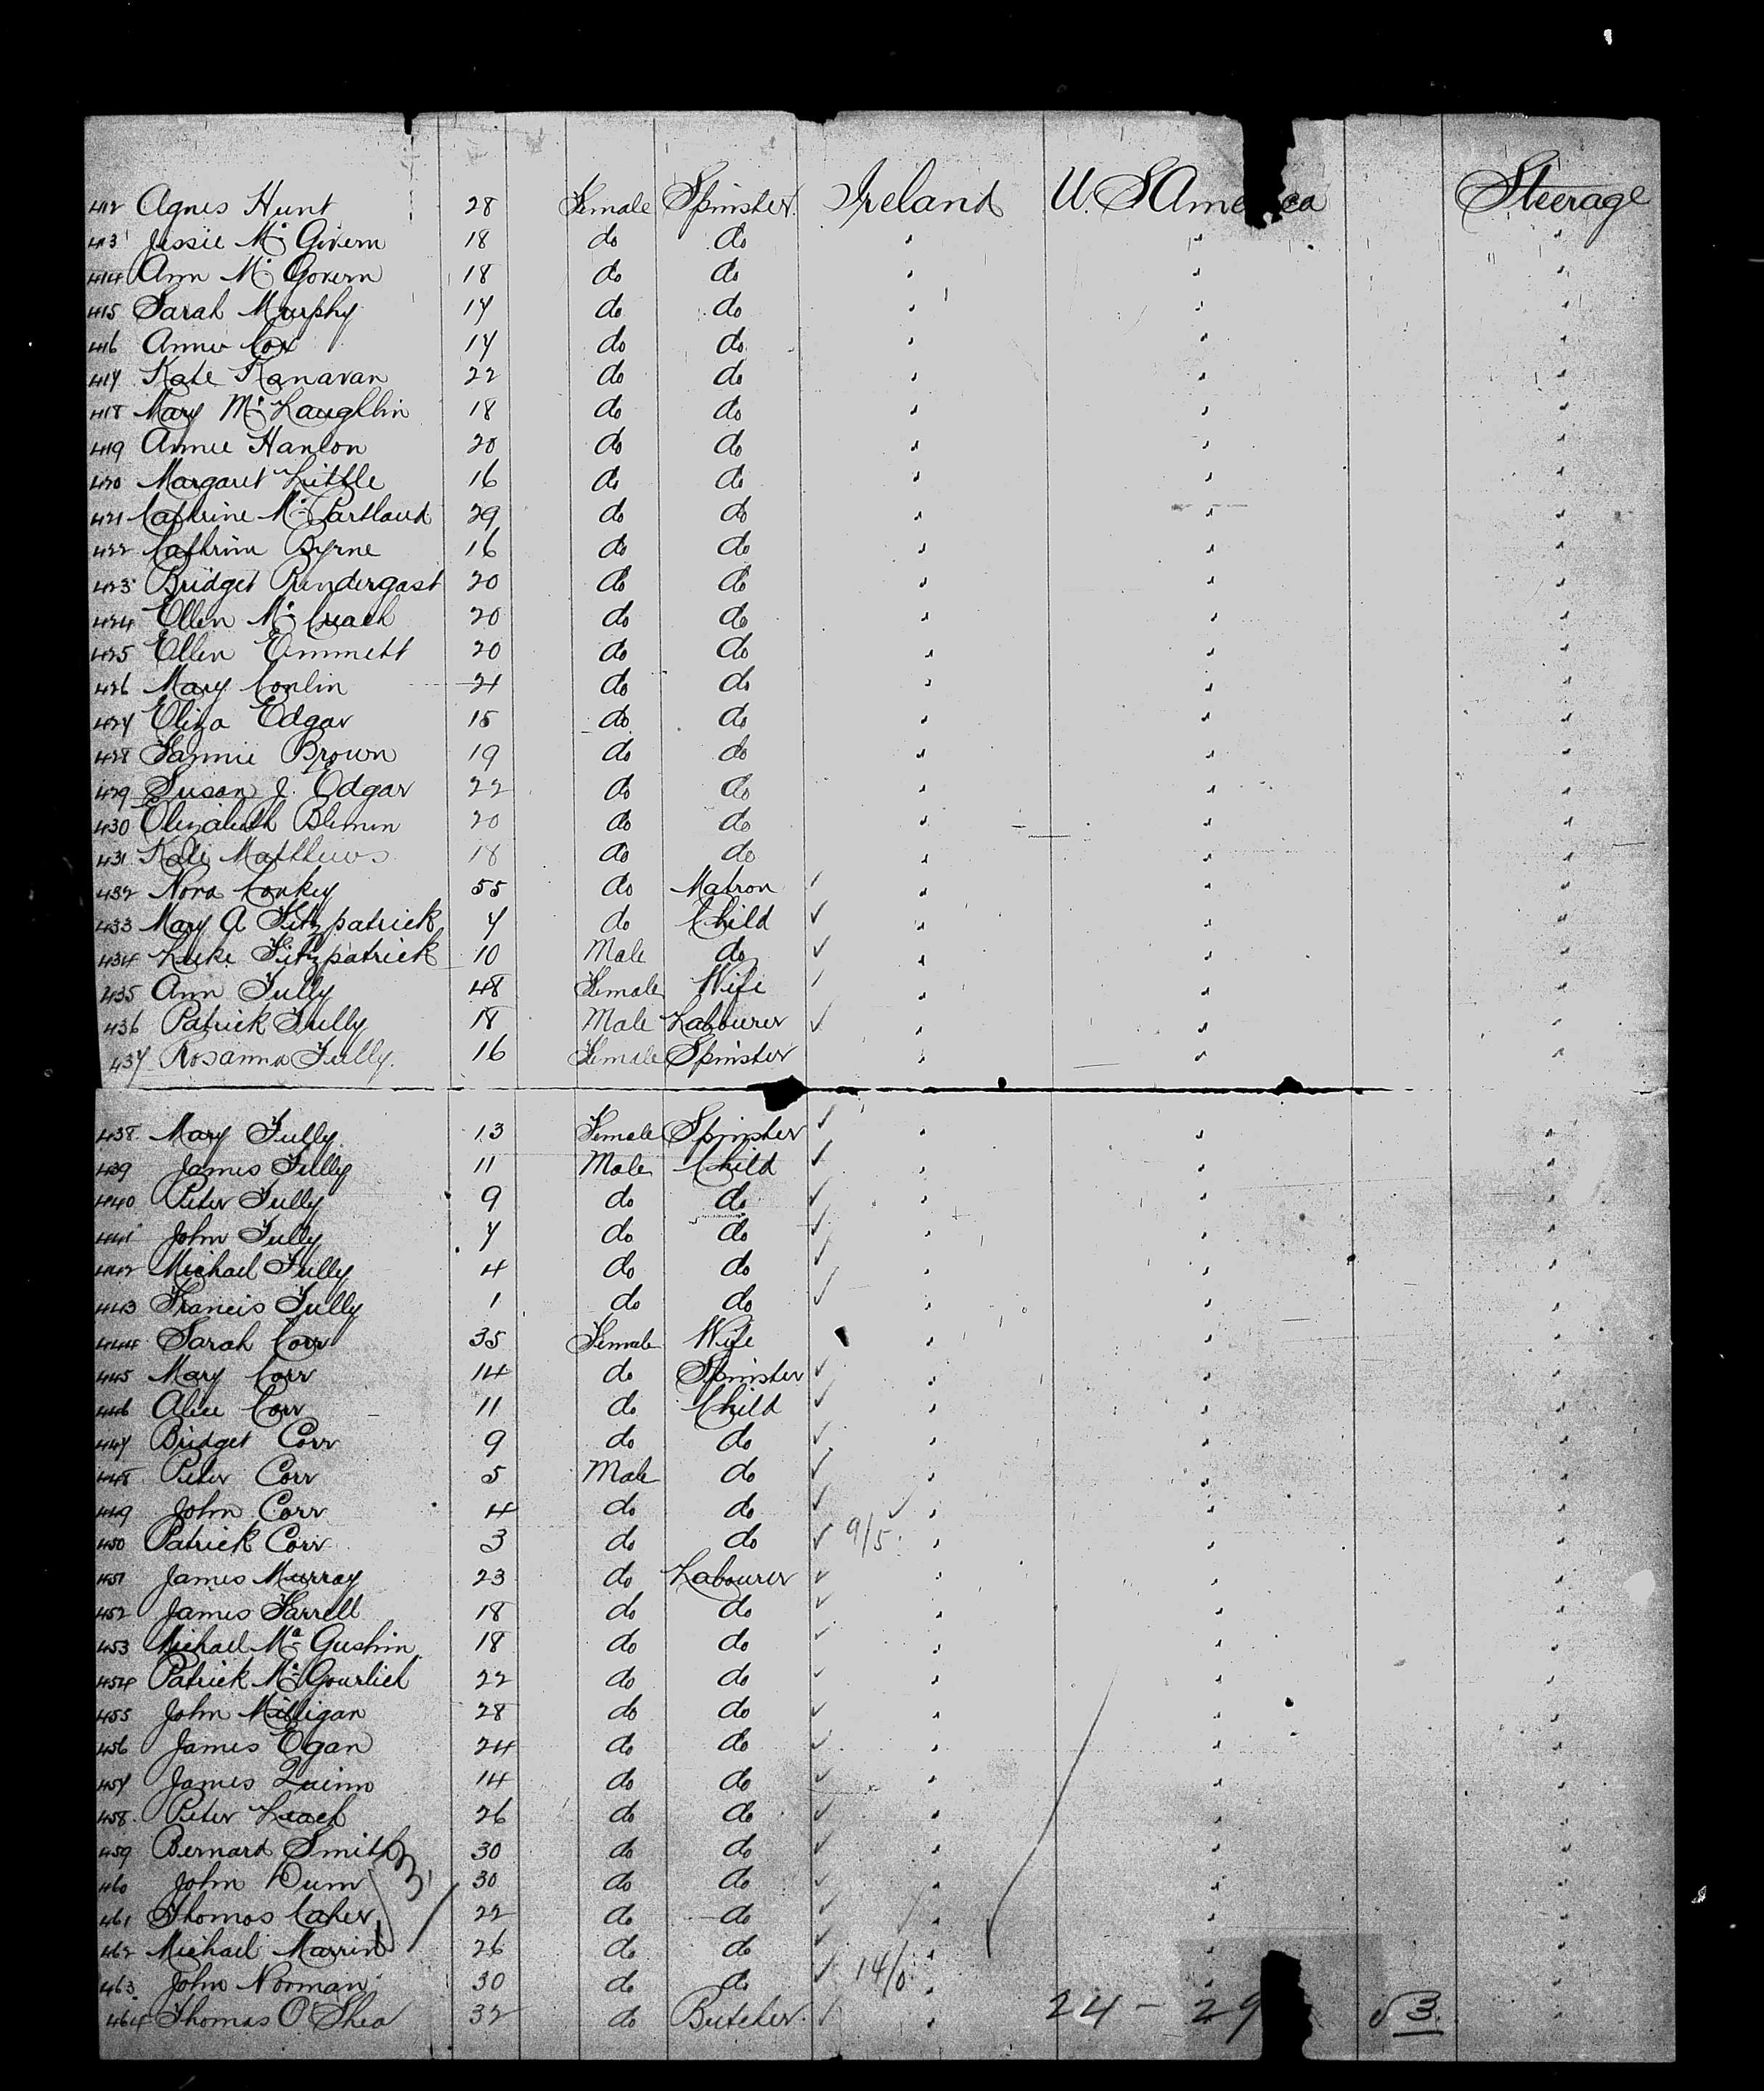 412 Agnes Hunt 28 Female Spinster Ireland U. S America Steerage
413 Jessie Mc Givern 18 do do " " "
414 Ann Mc Govern 18 do do " " "
415 Sarah Murphy 17 do do " " "
416 Annie Cox 17 do do " " "
417 Kate Kanavan 22 do do " " "
418 Mary Mc Laughlin 18 do do " " "
419 Annie Hanlon 20 do do " " "
420 Margaret Little 16 do do " " "
421 Cathrine Mc Partland 29 do do " " "
422 Cathrine Byrne 16 do do " " "
423 Bridget Prendergast 20 do do " " "
424 Ellen Mc 20 do do " " "
425 Ellen Emmett 20 do do " " "
426 Mary Conlin 21 do do " " "
427 Eliza Edgar 15 do do " " "
428 Fannie Brown 19 do do " " "
429 Susan J. Edgar 22 do do " " "
430 Elizabeth 20 do do " " "
431 Kate Matthews 18 do do " " "
432 Nora Conkey 55 do Matron " " "
433 Mary A Fitzpatrick 7 do Child " " "
434 Luke Fitzpatrick 10 Male do " " "
435 Ann Tully 48 Female Wife " " "
436 Patrick Tully 18 Male Labourer " " "
437 Rosanna Tully. 16 Female Spinster " " "
438 Mary Tully 13 Female Spinster " " "
439 James Tully 11 Male Child " " "
440 Peter Tully 9 do do " " "
441 John Tully 7 do do " " "
442 Michael Tully 4 do do " " "
443 Francis Tully 1 do do " " "
444 Sarah Corr 35 Female Wife " " "
445 Mary Corr 14 do Spinster " " "
446 Alice Corr 11 do Child " " "
447 Bridget Corr 9 do do " " "
448 Peter Corr 5 Male do " " "
449 John Corr 4 do do " " "
450 Patrick Corr 3 do do 9/5 " " "
451 James Murray 23 do Labourer " " "
452 James Farrell 18 do do " " "
453 Michael Mc Gushin 18 do do " " "
454 Patrick Mc 22 do do " " "
455 John Milligan 28 do do " " "
456 James Egan 24 do do " " "
457 James Quinn 14 do do " " "
458 Peter Leach 26 do do " " "
459 Bernard Smith 30 do do " " "
460 John Dunn 30 do do " " "
461 Thomas Caher 22 do do " " "
462 Michael Marrin 26 do do " " "
463 John Norman 30 do do 14/0 " " "
464 Thomas O'Shea 32 do Butcher " 24 - 29 3